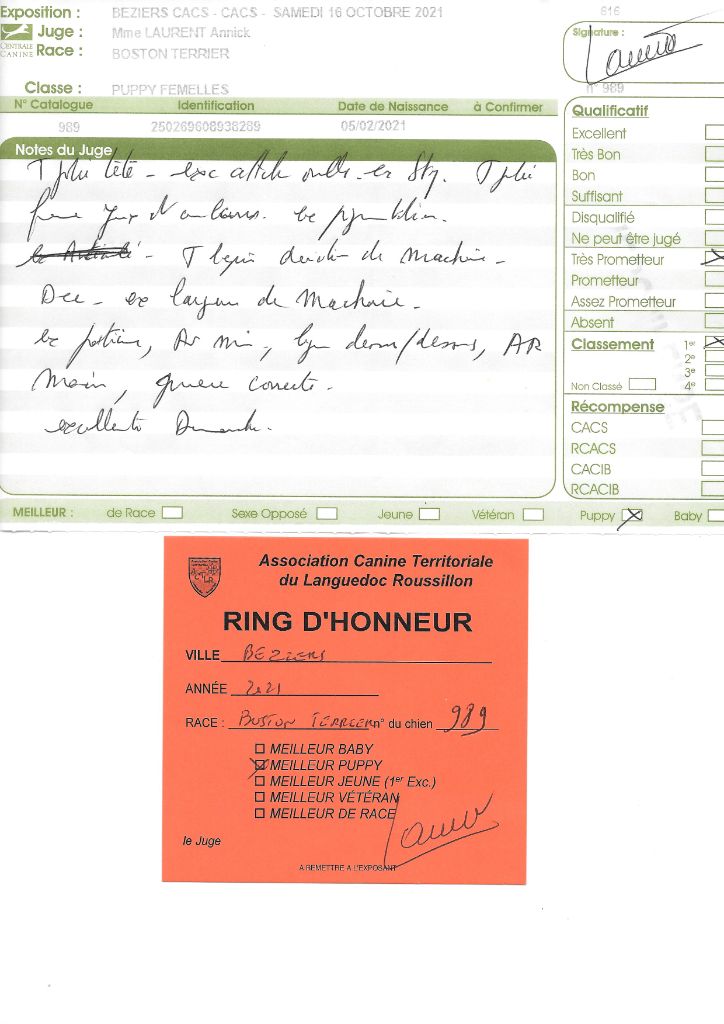 Exposition : BEZIERS CACS - CACS - SAMEDI 16 OCTOBRE 2021 616
CENTRALE CANINE
Juge : Mme LAURENT Annick
Signature :
Race : BOSTON TERRIER
Classe : PUPPY FEMELLES n° 989
N° Catalogue Identification Date de Naissance à Confirmer
989 250269608938289 05/02/2021
Notes du Juge
T jolie tête - exc attache oreille - T jolie
yeux
T de machoire -
ex largeur de machoire -
ex poitrine, dessus/dessous, AR
main, correcte.
excellente
Qualificatif
Excellent
Très Bon
Bon
Suffisant
Disqualifié
Ne peut être jugé
Très Prometteur
Prometteur
Assez Prometteur
Absent
Classement 1er
2e
3e
Non Classé 4e
Récompense
CACS
RCACS
CACIB
RCACIB
MEILLEUR : de Race Sexe Opposé Jeune Vétéran Puppy Baby
Association Canine Territoriale
du Languedoc Roussillon
RING D'HONNEUR
VILLE BEZIERS
ANNÉE 2021
RACE : BOSTON TERRIER n° du chien 989
MEILLEUR BABY
MEILLEUR PUPPY
MEILLEUR JEUNE (1er Exc.)
MEILLEUR VÉTÉRAN
MEILLEUR DE RACE
le Juge
A REMETTRE A L'EXPOSANT